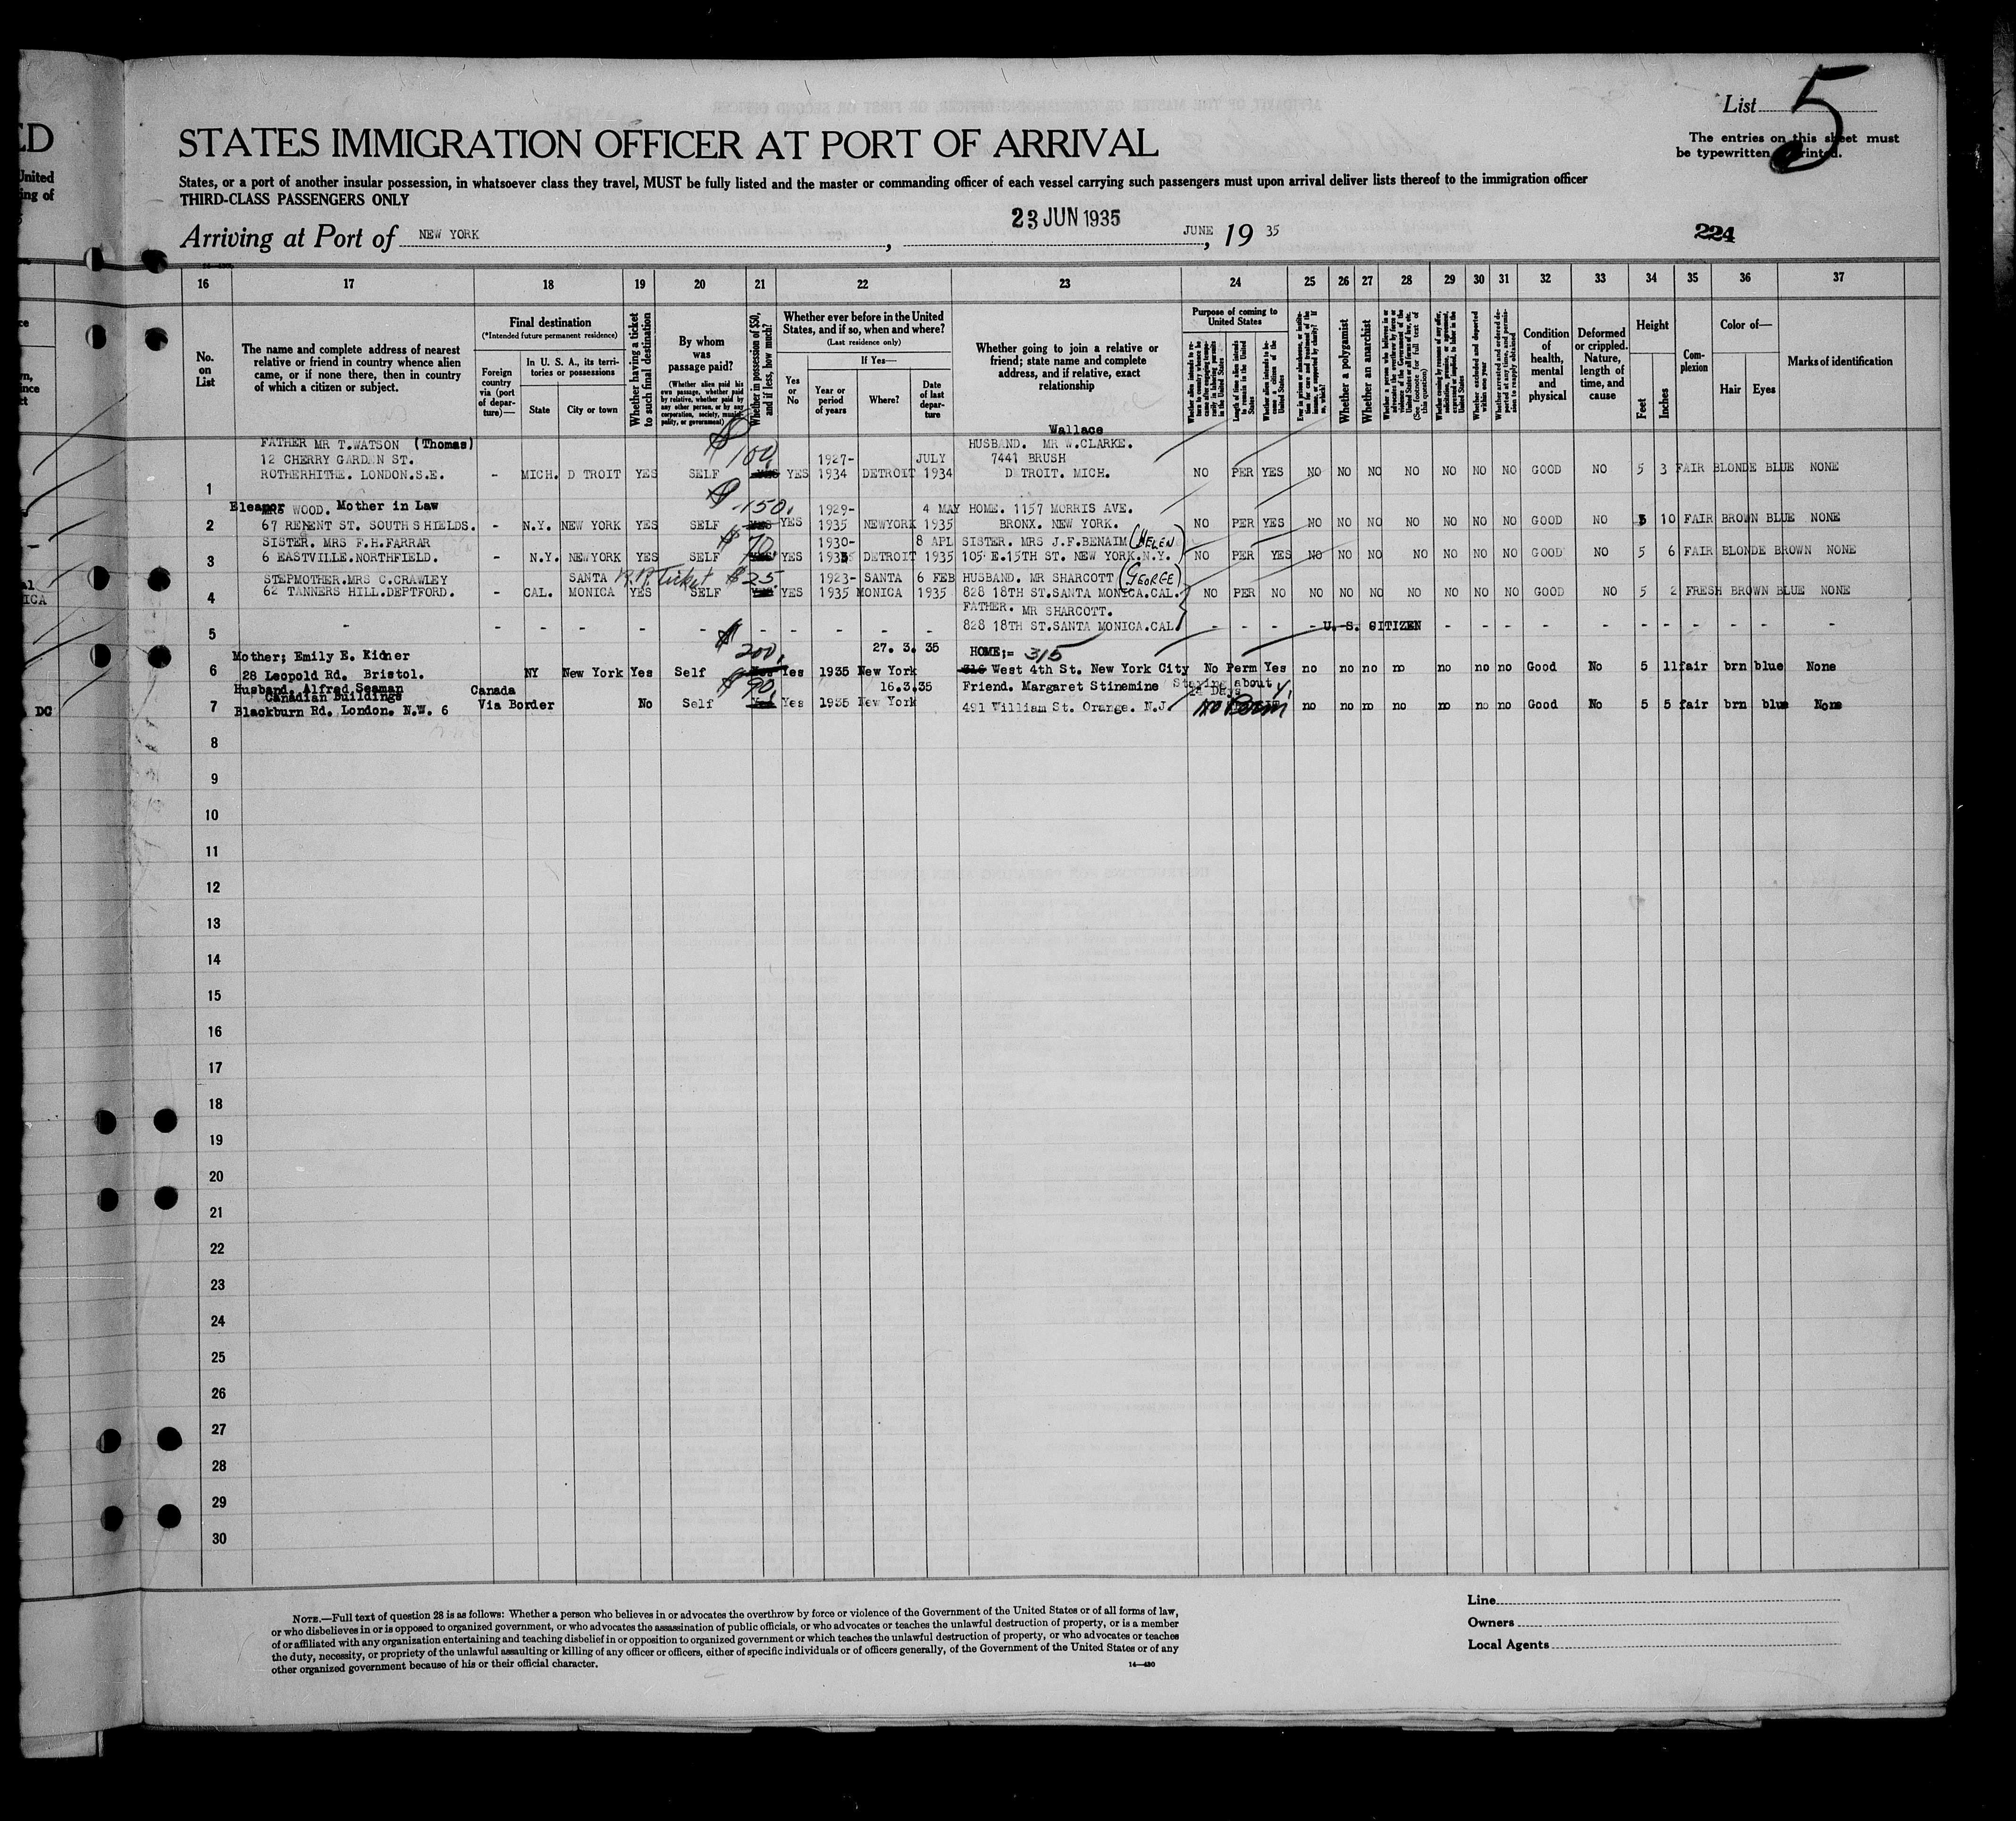 List 5
The entries on this sheet must
be typewritten printed.
ED
STATES IMMIGRATION OFFICER AT PORT OF ARRIVAL
United
ing of
States, or a port of another insular possession, in whatsoever class they travel, MUST be fully listed and the master or commanding officer of each vessel carrying such passengers must upon arrival deliver lists thereof to the immigration officer
THIRD-CLASS PASSENGERS ONLY
Arriving at Port of NEW YORK , 23 JUN 1935 JUNE , 19 35
224
16 17 18 19 20 21 22 23 24 25 26 27 28 29 30 31 32 33 34 35 36 37
No. on List
The name and complete address of nearest
relative or friend in country whence alien
came, or if none there, then in country
of which a citizen or subject.
Final destination
(*Intended future permanent residence)
Foreign country via (port of departure)—
In U. S. A., its territories or possessions
State
City or town
Whether having a ticket to such final destination
By whom was passage paid?
(Whether alien paid his own passage, whether paid by relative, whether paid by any other person, or by any corporation, society, municipality, or government)
Whether in possession of $50, and if less, how much?
Whether ever before in the United
States, and if so, when and where?
(Last residence only)
Yes or No
If Yes—
Year or period of years
Where?
Date of last departure
Whether going to join a relative or
friend; state name and complete
address, and if relative, exact
relationship
Purpose of coming to United States
Length of time alien intends to remain in the United States
Whether alien intends to become a citizen of the United States
Whether a polygamist
Whether an anarchist
(See footnote for full text of this question)
Whether excluded and deported within one year
Condition of health, mental and physical
Deformed or crippled. Nature, length of time, and cause
Height
Feet
Inches
Complexion
Color of—
Hair
Eyes
Marks of identification
Wallace
FATHER MR T.WATSON (Thomas) $ HUSBAND. MR W.CLARKE.
12 CHERRY GARD N ST. 100 1927- JULY 7441 BRUSH
1 ROTHERHITHE. LONDON.S.E. - MICH. D TROIT YES SELF YES YES 1934 DETROIT 1934 D TROIT. MICH. NO PER YES NO NO NO NO NO NO NO GOOD NO 5 3 FAIR BLONDE BLUE NONE
Eleanor MRS WOOD. Mother in Law $ 150. 1929- 4 MAY HOME. 1157 MORRIS AVE.
2 67 REGENT ST. SOUTH SHIELDS. - N.Y. NEW YORK YES SELF YES YES 1935 NEWYORK 1935 BRONX. NEW YORK. NO PER YES NO NO NO NO NO NO NO GOOD NO 5 10 FAIR BROWN BLUE NONE
SISTER. MRS F.H.FARRAR $ 70 1930- 8 APL SISTER. MRS J.F.BENAIM (HELEN)
3 6 EASTVILLE.NORTHFIELD. - N.Y. NEWYORK YES SELF YES YES 1935 DETROIT 1935 105 E.15TH ST. NEW YORK.N.Y. NO PER YES NO NO NO NO NO NO NO GOOD NO 5 6 FAIR BLONDE BROWN NONE
STEPMOTHER.MRS C.CRAWLEY SANTA R.R. Ticket $25. 1923- SANTA 6 FEB HUSBAND. MR SHARCOTT (GEORGE)
4 62 TANNERS HILL.DEPTFORD. - CAL. MONICA YES SELF YES YES 1935 MONICA 1935 828 18TH ST.SANTA MONICA.CAL. NO PER NO NO NO NO NO NO NO NO GOOD NO 5 2 FRESH BROWN BLUE NONE
FATHER. MR SHARCOTT.
5 - - - - - - - - - - - 828 18TH ST.SANTA MONICA.CAL. - - - - U.S. CITIZEN - - - - - - - - - - -
Mother; Emily E. Kidner $ 200. 27. 3. 35 HOME;= 315
6 28 Leopold Rd. Bristol. NY New York Yes Self Yes Yes 1935 New York 316 West 4th St. New York City No Perm Yes no no no no no no no Good No 5 11 fair brn blue None
Husband. Alfred Seaman Canada $ 90. 16.3.35 Friend. Margaret Stinemine Staying about
Canadian Buildings Days
7 Blackburn Rd. London. N.W. 6 Via Border No Self Yes Yes 1935 New York 491 William St. Orange. N.J. no Perm no no no no no no no Good No 5 5 fair brn blue None
DC
8
9
10
11
12
13
14
15
16
17
18
19
20
21
22
23
24
25
26
27
28
29
30
NOTE.—Full text of question 28 is as follows: Whether a person who believes in or advocates the overthrow by force or violence of the Government of the United States or of all forms of law,
or who disbelieves in or is opposed to organized government, or who advocates the assassination of public officials, or who advocates or teaches the unlawful destruction of property, or is a member
of or affiliated with any organization entertaining and teaching disbelief in or opposition to organized government or which teaches the unlawful destruction of property, or who advocates or teaches
the duty, necessity, or propriety of the unlawful assaulting or killing of any officer or officers, either of specific individuals or of officers generally, of the Government of the United States or of any
other organized government because of his or their official character.
14—430
Line
Owners
Local Agents